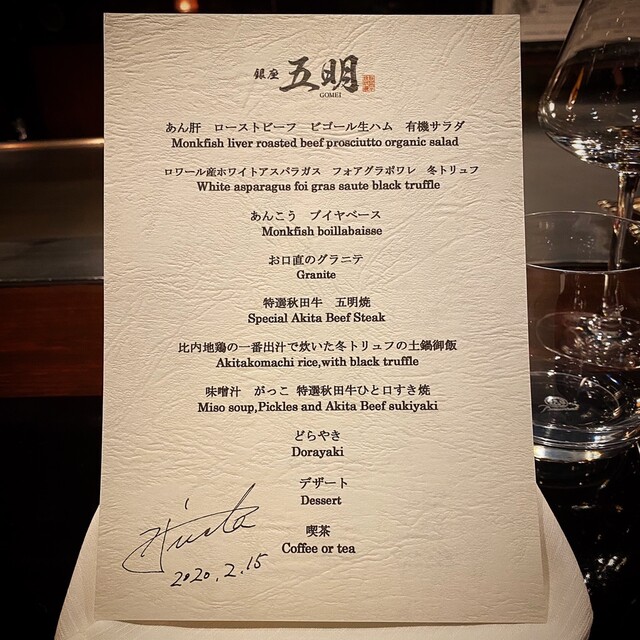 銀座 五明
GOMEI
あん肝 ローストビーフ ビゴール生ハム 有機サラダ
Monkfish liver roasted beef prosciutto organic salad
ロワール産ホワイトアスパラガス フォアグラポワレ 冬トリュフ
White asparagus foi gras saute black truffle
あんこう ブイヤベース
Monkfish boillabaisse
お口直のグラニテ
Granite
特選秋田牛 五明焼
Special Akita Beef Steak
比内地鶏の一番出汁で炊いた冬トリュフの土鍋御飯
Akitakomachi rice,with black truffle
味噌汁 がっこ 特選秋田牛ひと口すき焼
Miso soup,Pickles and Akita Beef sukiyaki
どらやき
Dorayaki
デザート
Dessert
喫茶
Coffee or tea
2020.2.15